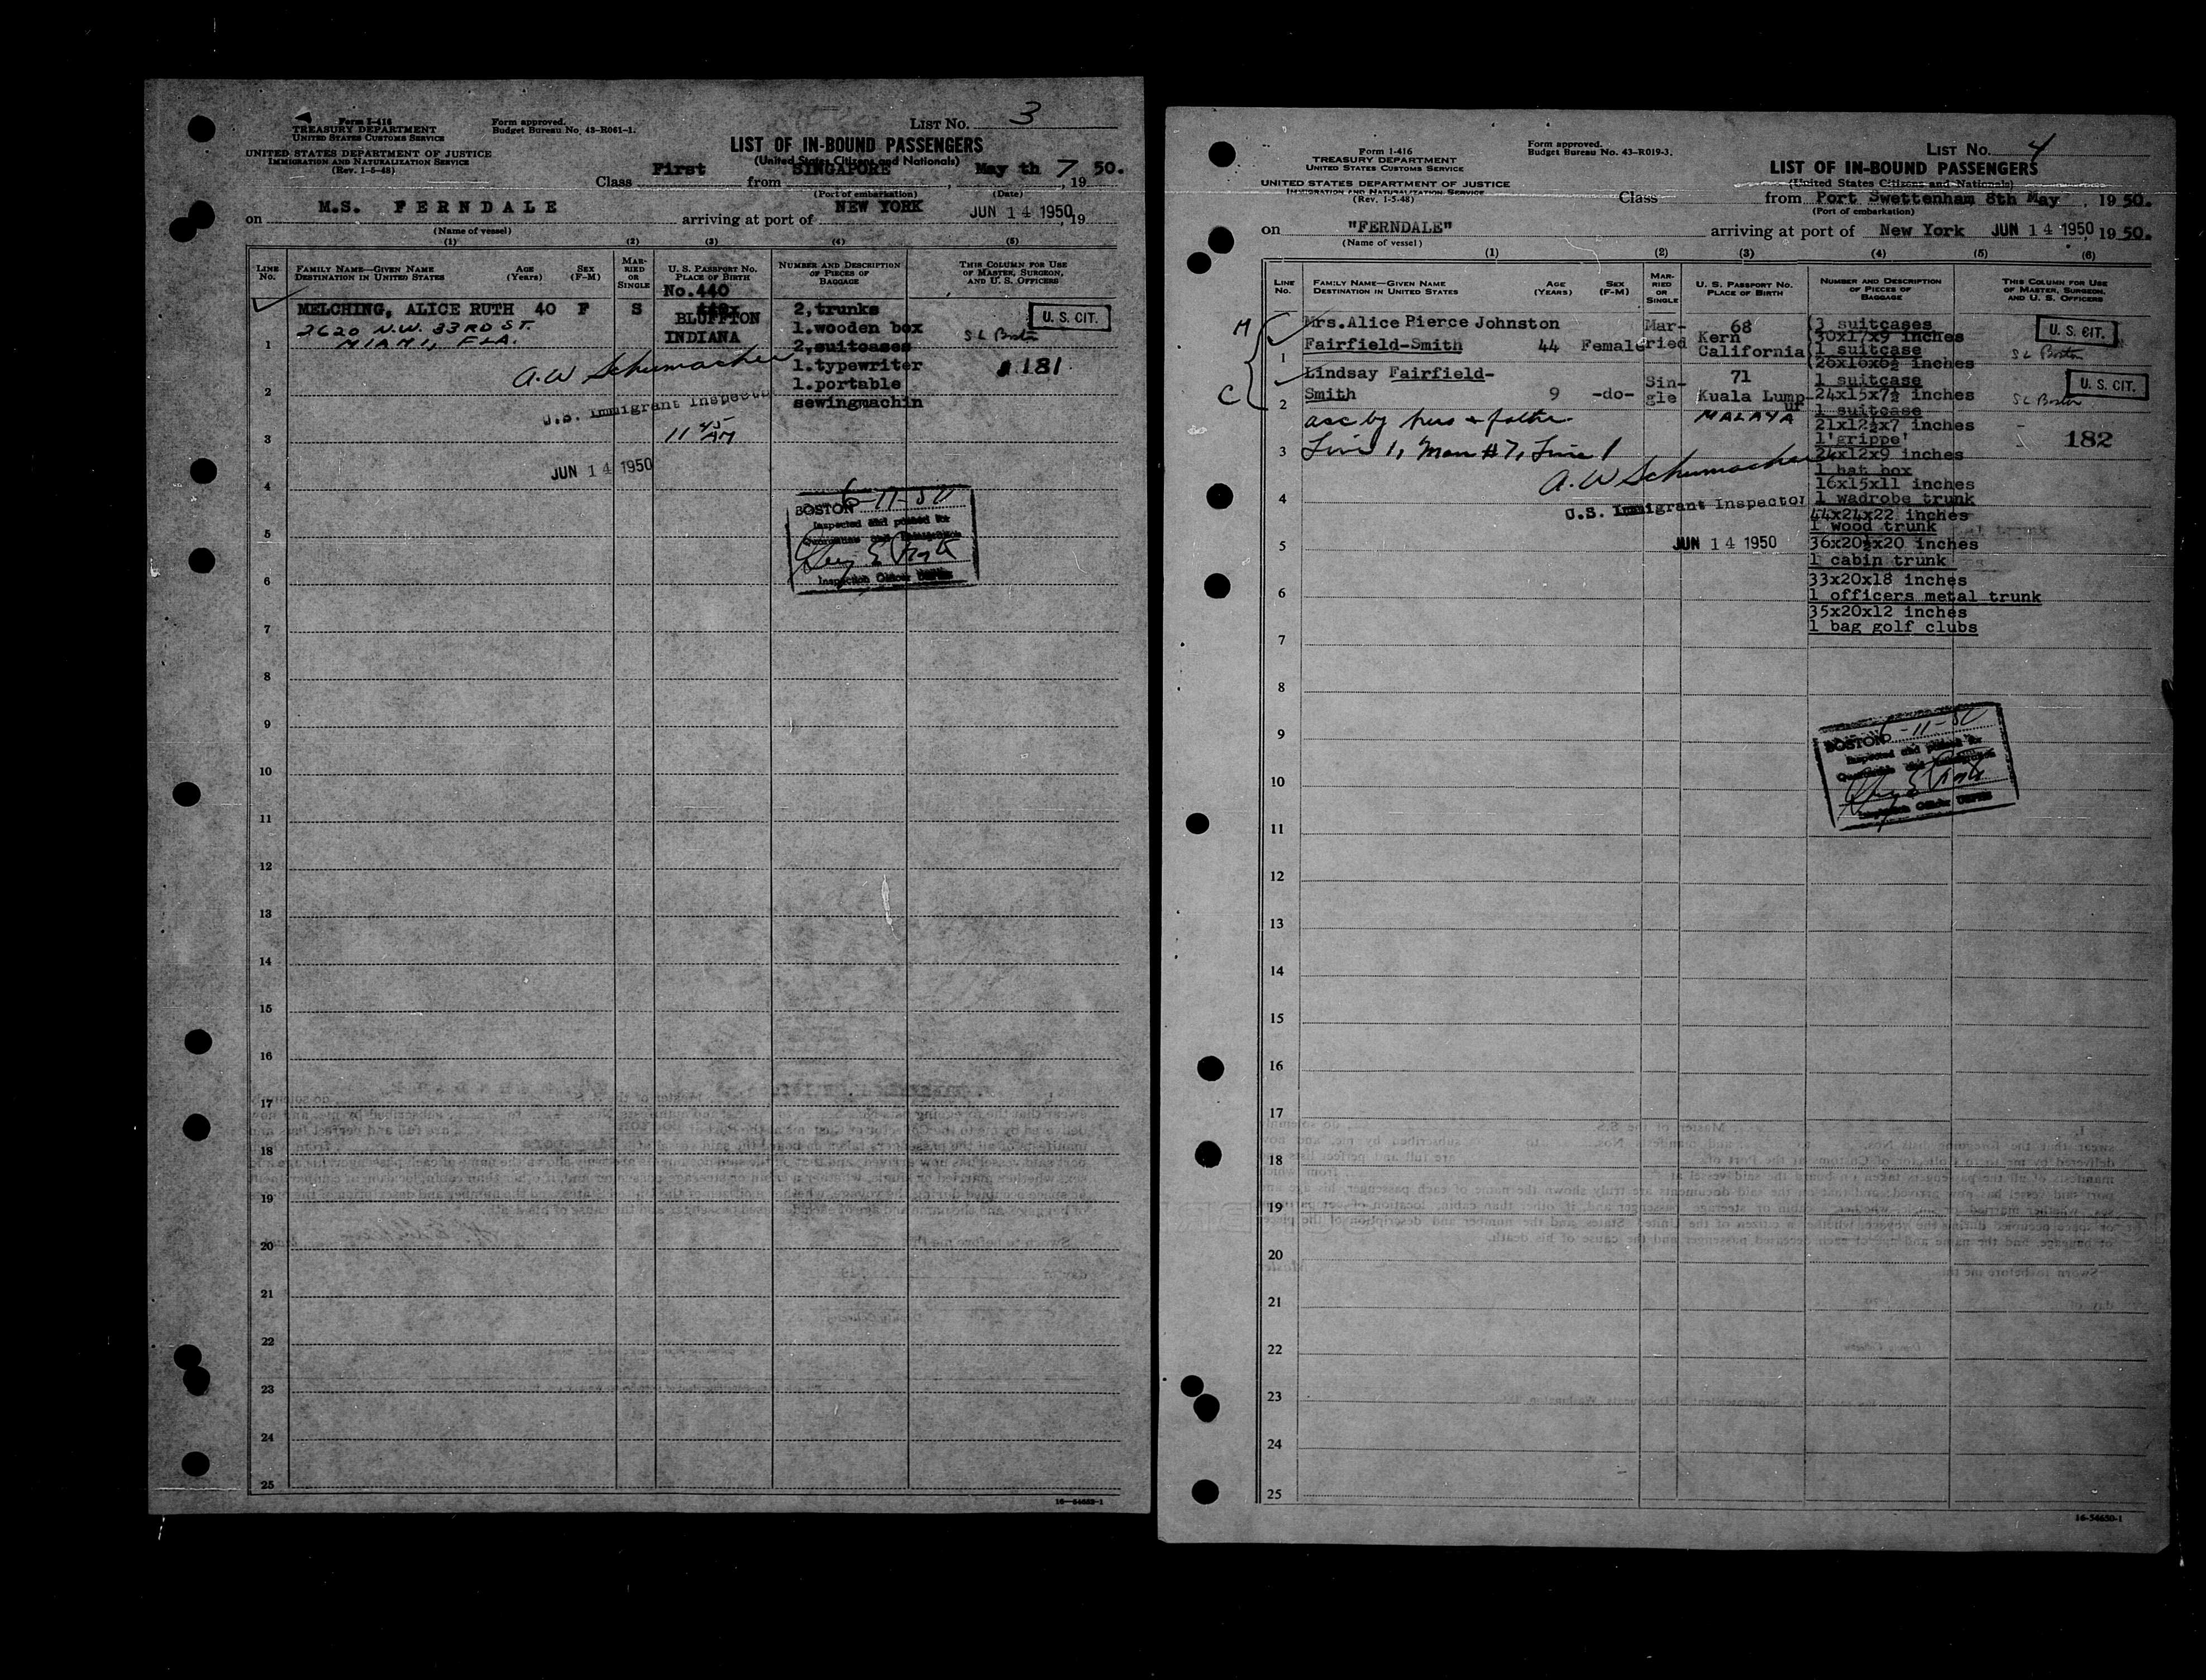 Form I-416
TREASURY DEPARTMENT
UNITED STATES CUSTOMS SERVICE
UNITED STATES DEPARTMENT OF JUSTICE
IMMIGRATION AND NATURALIZATION SERVICE
(Rev. 1-5-48)
Form approved.
Budget Bureau No. 43-R061-1.
LIST No. 3
LIST OF IN-BOUND PASSENGERS
(United States Citizens and Nationals)
Class First from SINGAPORE, May th 7, 19 50.
(Port of embarkation) (Date)
on M.S. FERNDALE arriving at port of NEW YORK JUN 14 1950, 19
(Name of vessel)
(1) (2) (3) (4) (5)
LINE No. FAMILY NAME—GIVEN NAME DESTINATION IN UNITED STATES AGE (Years) SEX (F-M) MARRIED OR SINGLE U. S. PASSPORT NO. PLACE OF BIRTH NUMBER AND DESCRIPTION OF PIECES OF BAGGAGE THIS COLUMN FOR USE OF MASTER, SURGEON, AND U. S. OFFICERS
No.440
MELCHING, ALICE RUTH 40 F S BLUFFTON 2,trunks U. S. CIT.
2620 N.W. 33RD ST. 1.wooden box
1 MIAMI, FLA. INDIANA 2,suitcases S L Boston
A.W Schumacher 1.typewriter 181
2 1.portable
U.S. Immigrant Inspector sewingmachin
3 11 45 AM
JUN 14 1950
4
6-11-50
BOSTON
Inspected and passed for
Quarantine and Immigration
5
Inspection Officer USPHS
6
7
8
9
10
11
12
13
14
15
16
17
18
19
20
21
22
23
24
25
Form I-416
TREASURY DEPARTMENT
UNITED STATES CUSTOMS SERVICE
UNITED STATES DEPARTMENT OF JUSTICE
IMMIGRATION AND NATURALIZATION SERVICE
(Rev. 1-5-48)
Form approved.
Budget Bureau No. 43-R019-3.
LIST No. 4
LIST OF IN-BOUND PASSENGERS
(United States Citizens and Nationals)
Class from Port Swettenham 8th May, 19 50.
(Port of embarkation)
on "FERNDALE" arriving at port of New York JUN 14 1950, 19 50.
(Name of vessel)
(1) (2) (3) (4) (5) (6)
LINE No. FAMILY NAME—GIVEN NAME DESTINATION IN UNITED STATES AGE (YEARS) SEX (F-M) MARRIED OR SINGLE U. S. PASSPORT NO. PLACE OF BIRTH NUMBER AND DESCRIPTION OF PIECES OF BAGGAGE THIS COLUMN FOR USE OF MASTER, SURGEON, AND U. S. OFFICERS
M Mrs.Alice Pierce Johnston Mar- 68 3 suitcases U. S. CIT.
Fairfield-Smith 44 Female ried Kern 30x17x9 inches
1 California 1 suitcase S L Boston
26x16x6½ inches
Lindsay Fairfield- Sin- 71 1 suitcase U. S. CIT.
C 2 Smith 9 -do- gle Kuala Lumpur 24x15x7½ inches S L Boston
MALAYA 1 suitcase
21x12½x7 inches
1'grippe' 182
3 Line 1, Man #7, Line 1 24x12x9 inches
A.W Schumacher 1 hat box
16x15x11 inches
4 U.S. Immigrant Inspector 1 wadrobe trunk
44x24x22 inches
1 wood trunk
5 JUN 14 1950 36x20½x20 inches
1 cabin trunk
33x20x18 inches
6 1 officers metal trunk
35x20x12 inches
1 bag golf clubs
7
8
9
BOSTON 6-11-50
Inspected and passed for
Quarantine and Immigration
10
Inspection Officer USPHS
11
12
13
14
15
16
17
18
19
20
21
22
23
24
25
16-54650-1